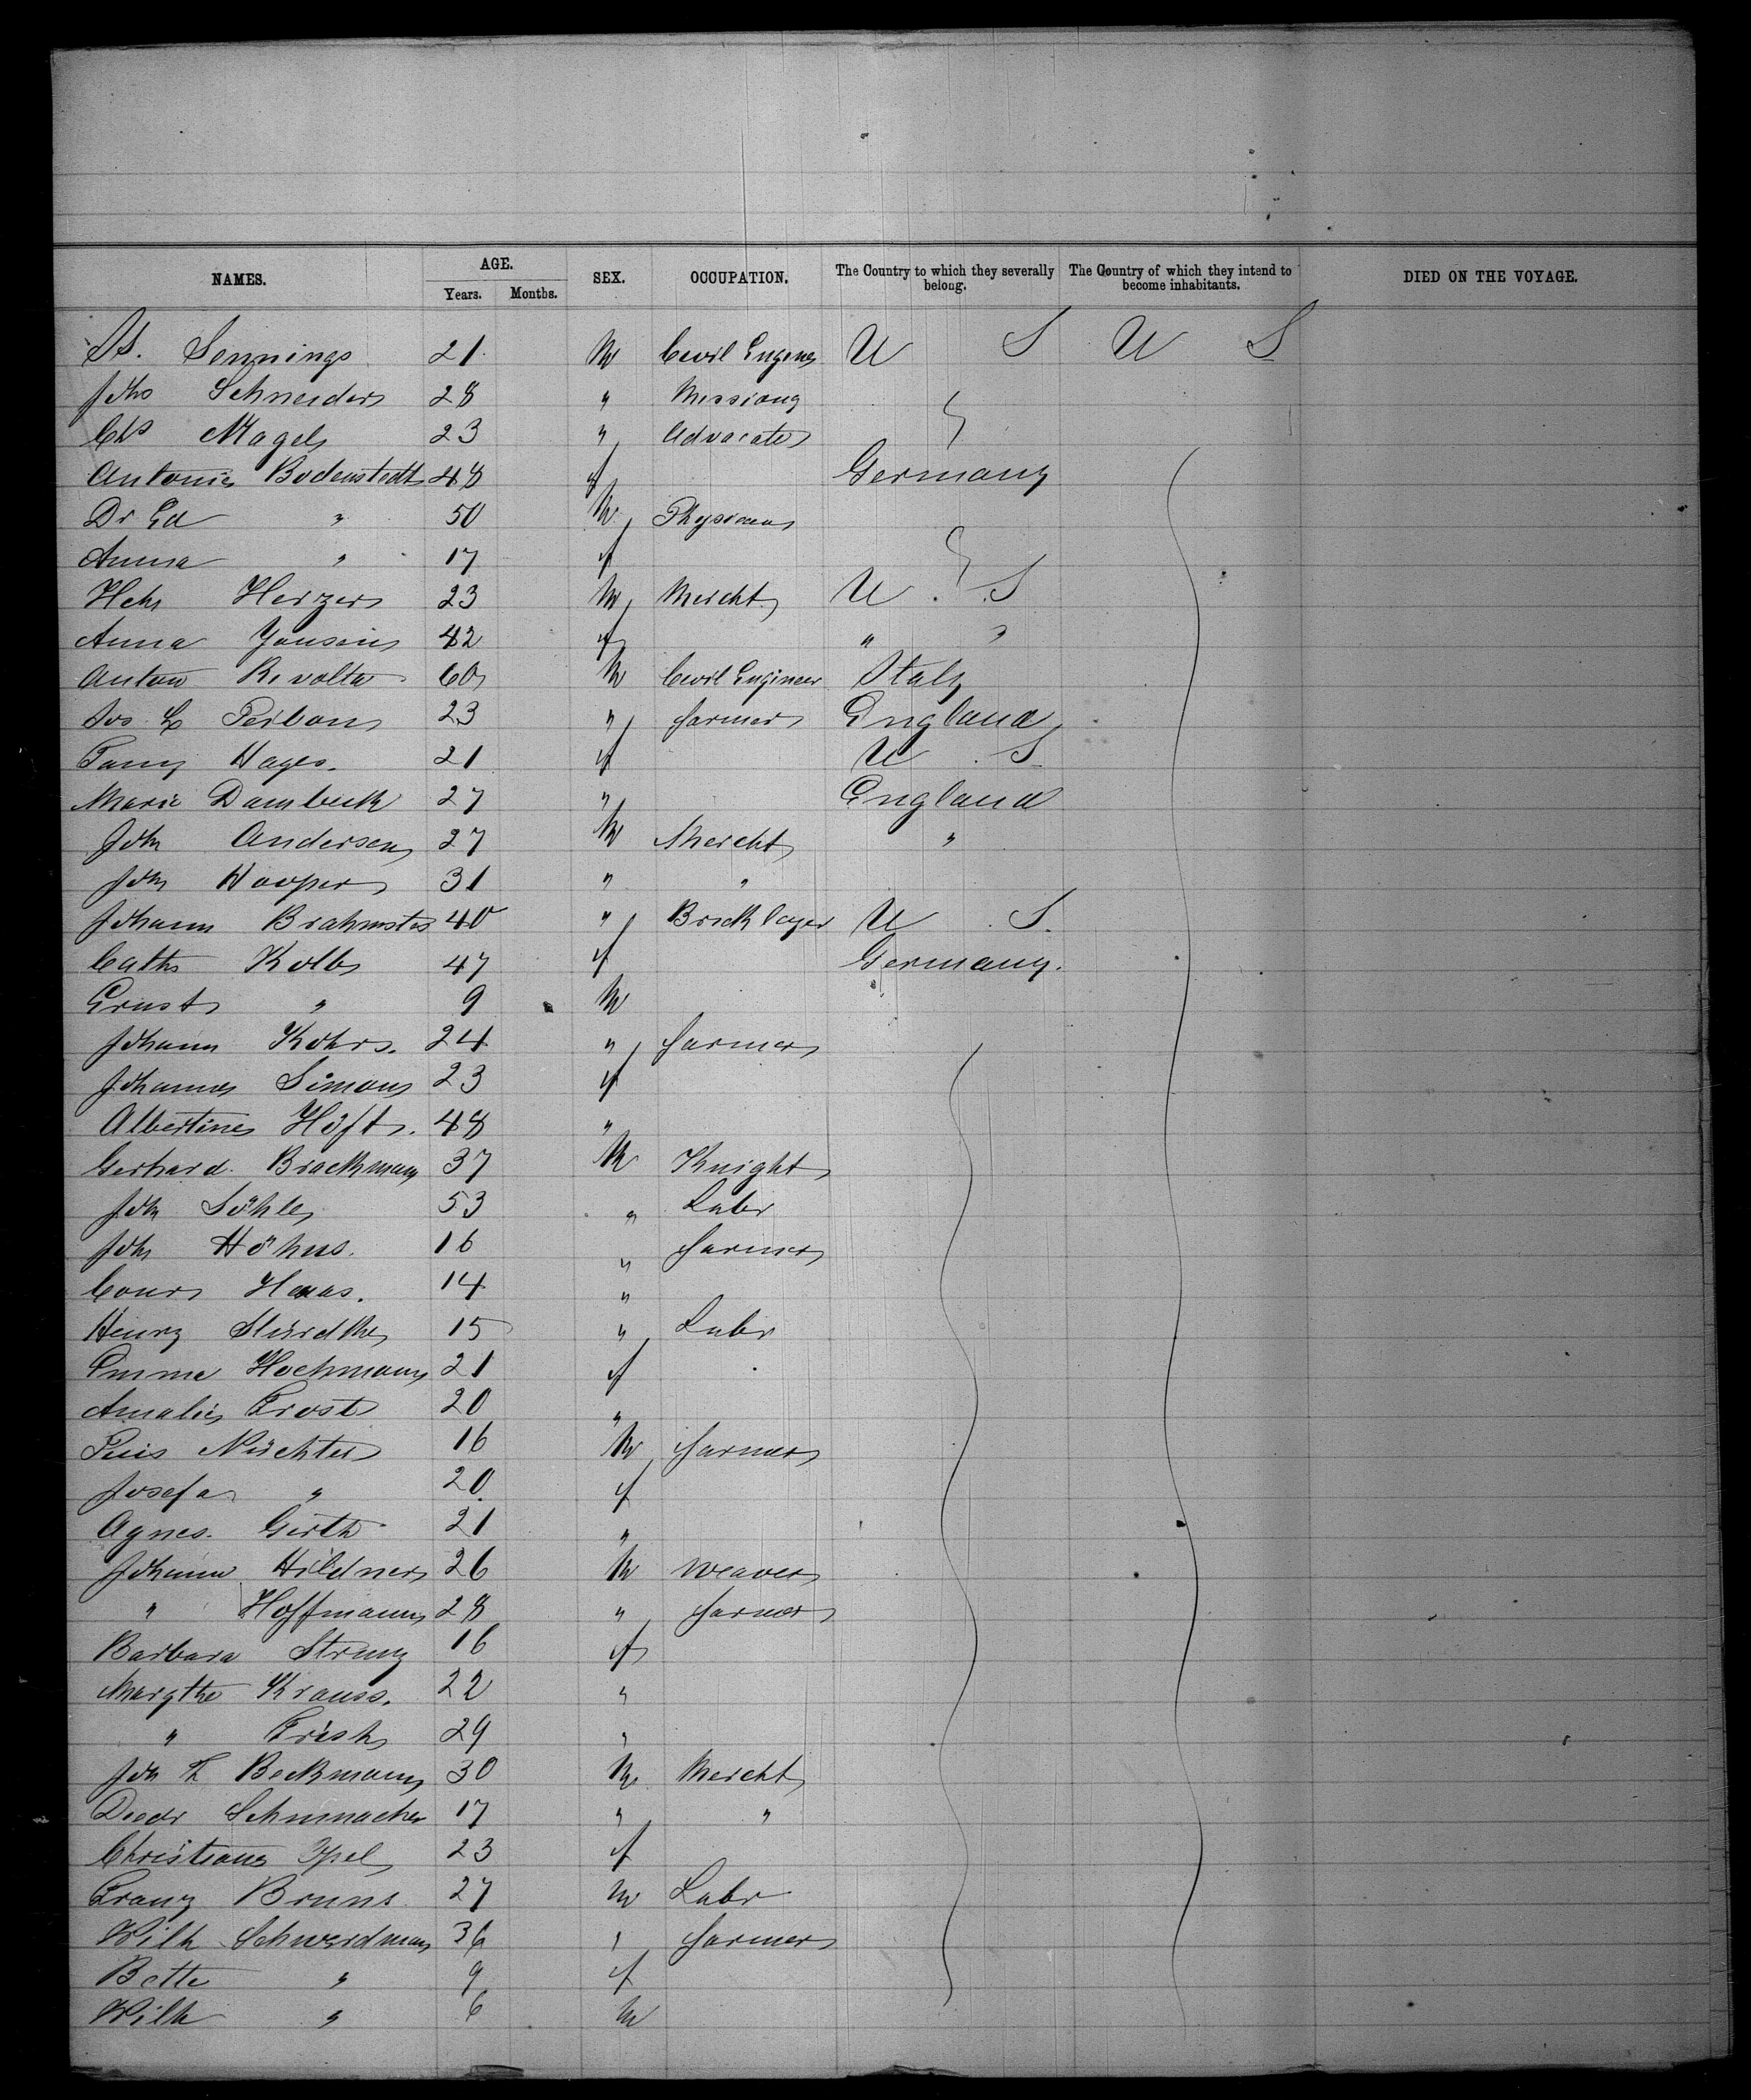 NAMES. AGE. SEX. OCCUPATION. The Country to which they severally belong. The Country of which they intend to become inhabitants. DIED ON THE VOYAGE.
Years. Months.
Jennings 21 M Civil Engener U S U S
Johs Schneider 28 "
Chs Nagel 23 " Advocate
Antonie Bodenstedt 48 f Germany
Dr Ed " 50 M Physician
Anna " 17 f
Hch Herzer 23 M Mercht U S
Anna 42 f " "
Anton Revolta 60 M Civil Engineer Italy
23 " farmer England
Fany Hages. 21 f U S
Marie Dambeck 27 " England
Joh Andersen 27 M Mercht "
Joh Hooper 31 " "
Johann 40 " Bricklayer U S.
Cath Kolb 47 f Germany.
Ernst " 9 M
Johann Kohrs. 24 " farmer
Johanna Simons 23 f
Albertine Höft. 48 "
Gerhard Brackmann 37 M Knight
Joh Söhle 53 " Labr
Joh Höhns. 16 " farmer
Haas. 14 "
Henry 15 " Labr
Emma Hochmann 21 f
Amalie Frost 20 "
Pius Nüchter 16 M farmer
Josefa " 20 f
Agnes Gerth 21 "
Johann Hildner 26 M weaver
" Hoffmann 28 " farmer
Barbara Strunz 16 f
Margthe Krauss. 22 "
" Frish 29 "
Joh H Beckmann 30 M Mercht
Diedr Schumacher 17 " "
Christiane Ipel 23 f
Franz Bruns 27 M Labr
Wilh Schwerdman 36 " farmer
Bette " 9 f
Wilh " 6 M